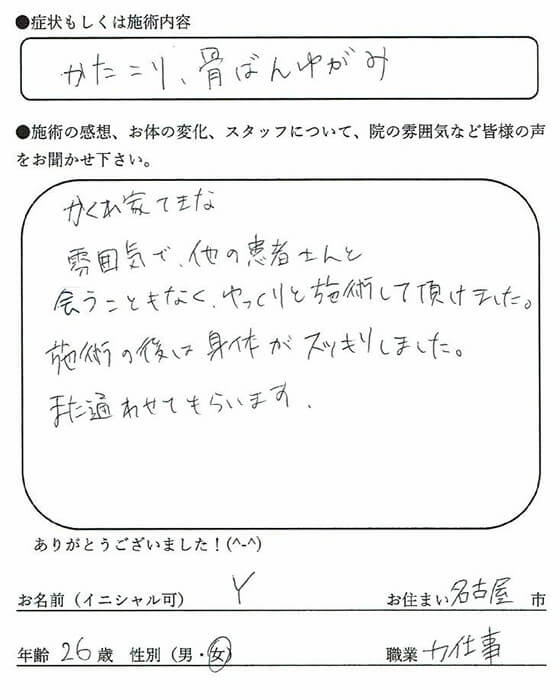 ●症状もしくは施術内容
かたこり、骨ばんゆがみ
●施術の感想、お体の変化、スタッフについて、院の雰囲気など皆様の声
をお聞かせ下さい。
かくれ家てきな
雰囲気で、他の患者さんと
会うこともなく、ゆっくりと施術して頂けました。
施術の後は身体がスッキリしました。
また通わせてもらいます.
ありがとうございました！(^-^)
お名前（イニシャル可） Y お住まい 名古屋 市
年齢 26 歳 性別（男・女） 職業 力仕事